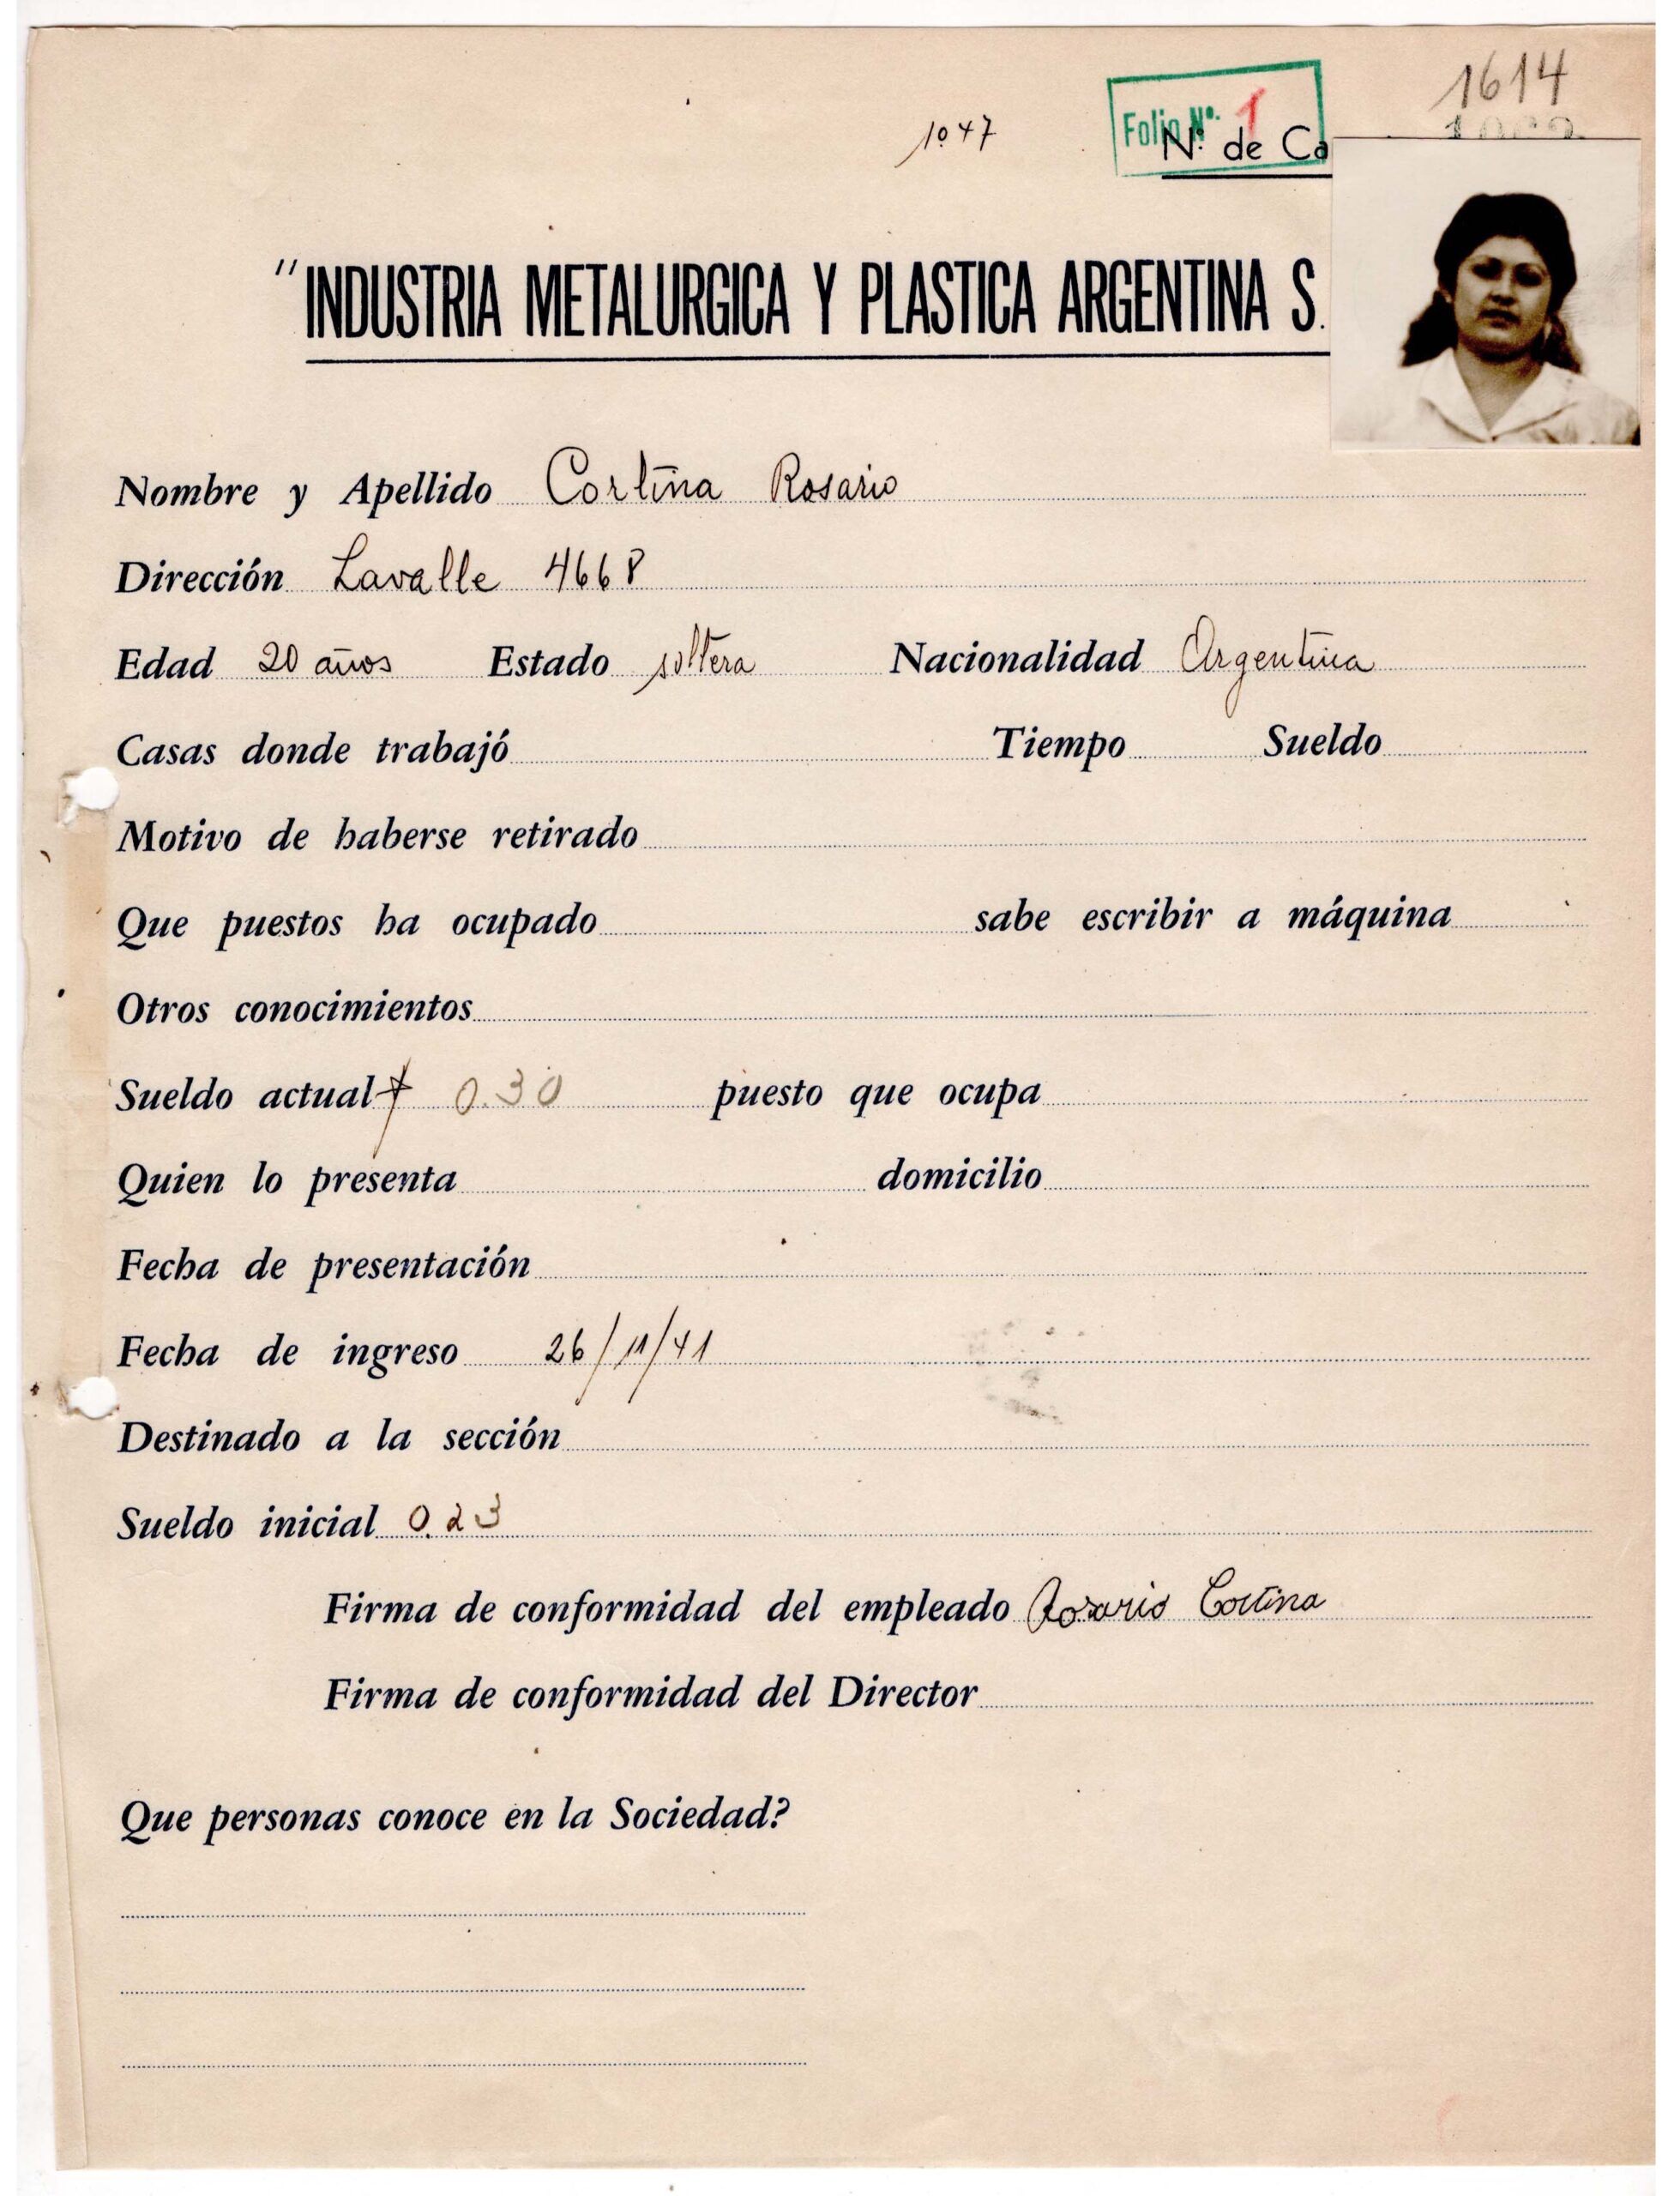 1614
1047
Folio Nº. 1
Nº de Ca
"INDUSTRIA METALURGICA Y PLASTICA ARGENTINA S.
Nombre y Apellido Cortina Rosario
Dirección Lavalle 4668
Edad 20 años Estado soltera Nacionalidad Argentina
Casas donde trabajó Tiempo Sueldo
Motivo de haberse retirado
Que puestos ha ocupado sabe escribir a máquina
Otros conocimientos
Sueldo actual 0.30 puesto que ocupa
Quien lo presenta domicilio
Fecha de presentación
Fecha de ingreso 26/11/41
Destinado a la sección
Sueldo inicial 0.23
Firma de conformidad del empleado Rosario Cortina
Firma de conformidad del Director
Que personas conoce en la Sociedad?